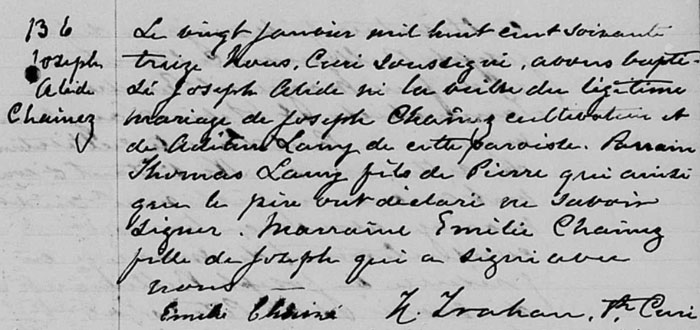 B 6
Joseph
Alide
Chainez
Le vingt janvier mil huit cent soixante
treize Nous, Curé soussigné, avons bapti-
sé Joseph Alide né la veille du légitime
mariage de Joseph Chaînez cultivateur et
de Lamy de cette paroisse. Parrain
Thomas Lamy fils de Pierre qui ainsi
que le père ont déclaré ne savoir
signer. Marraine Emilie Chainez
fille de Joseph qui a signé avec
nous —
Emilie Chainé N. Trahan, Ptr Curé